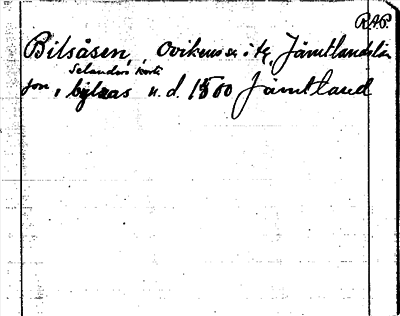 R.A.P.
Bilsåsen, Ovikens sn. i fg. Jämtlandslän
Selanders kart
för, bylsas n. d. 1500 Jämtland